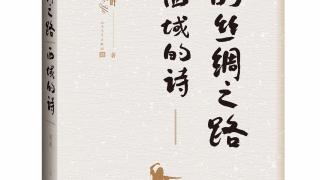 的丝绸之路
西域的诗
著
之路 西域的诗